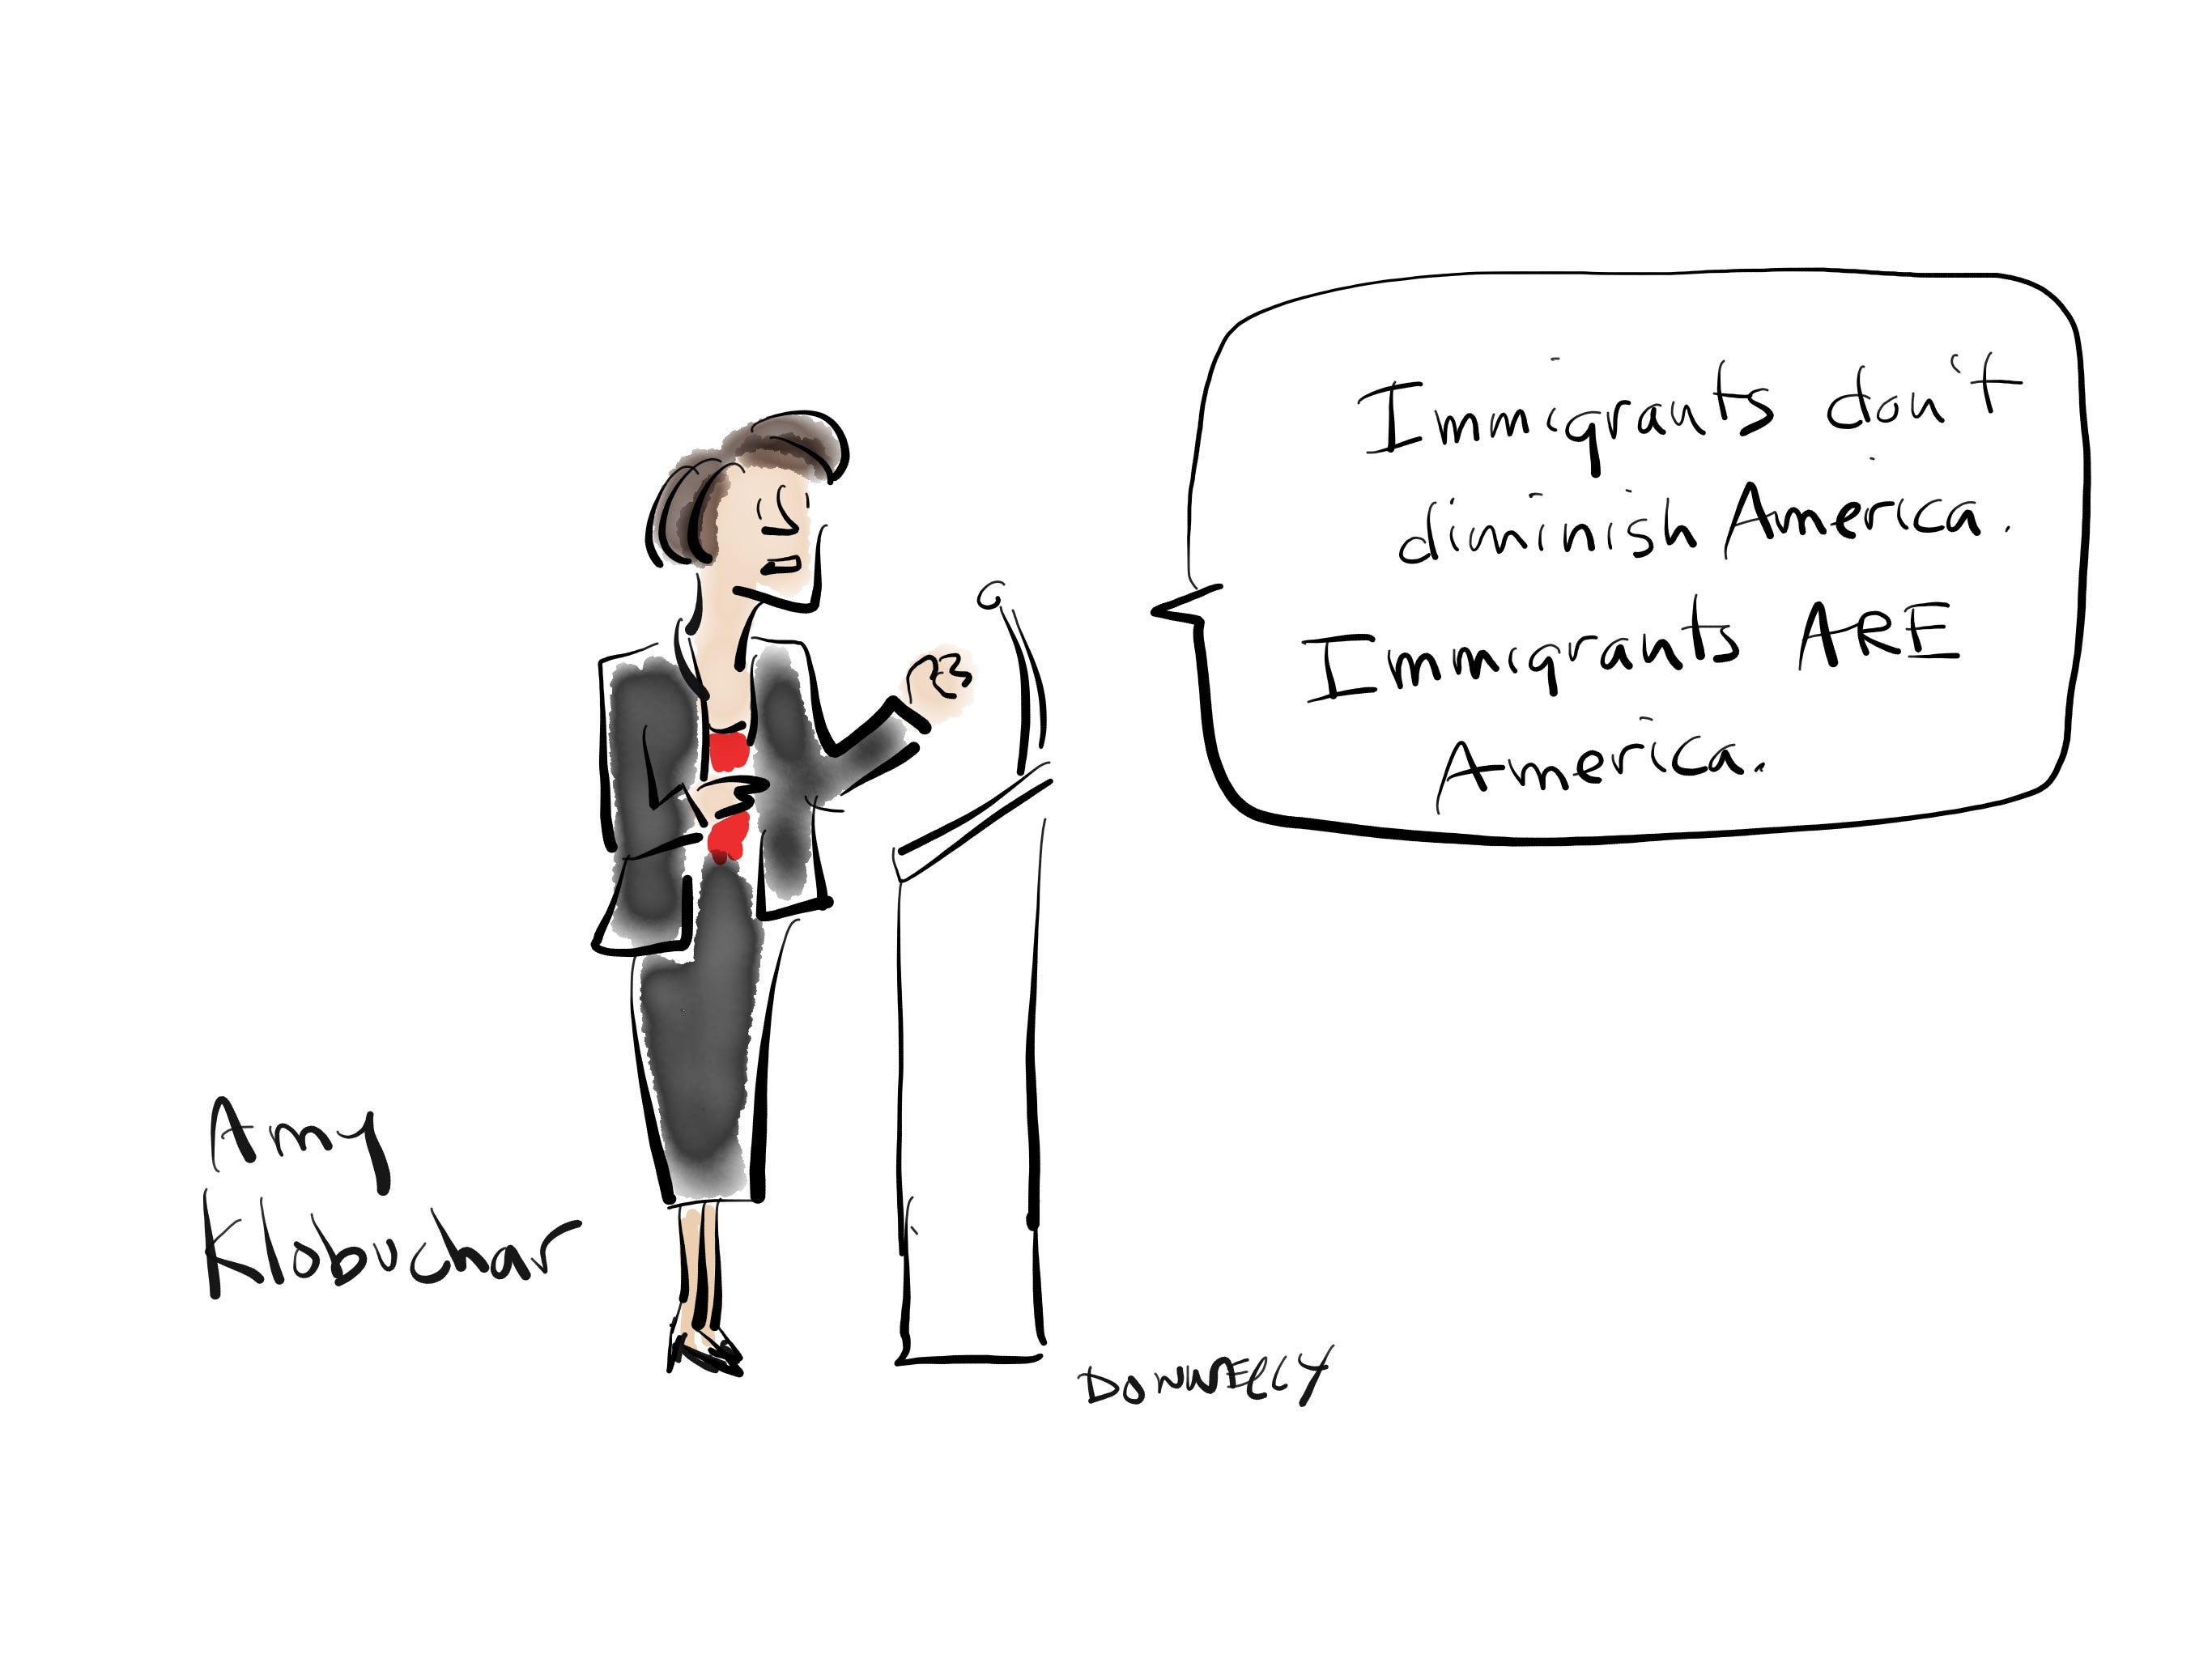 Immigrants don't
diminish America.
Immigrants ARE
America.
Amy
Klobuchar
DONNELLY